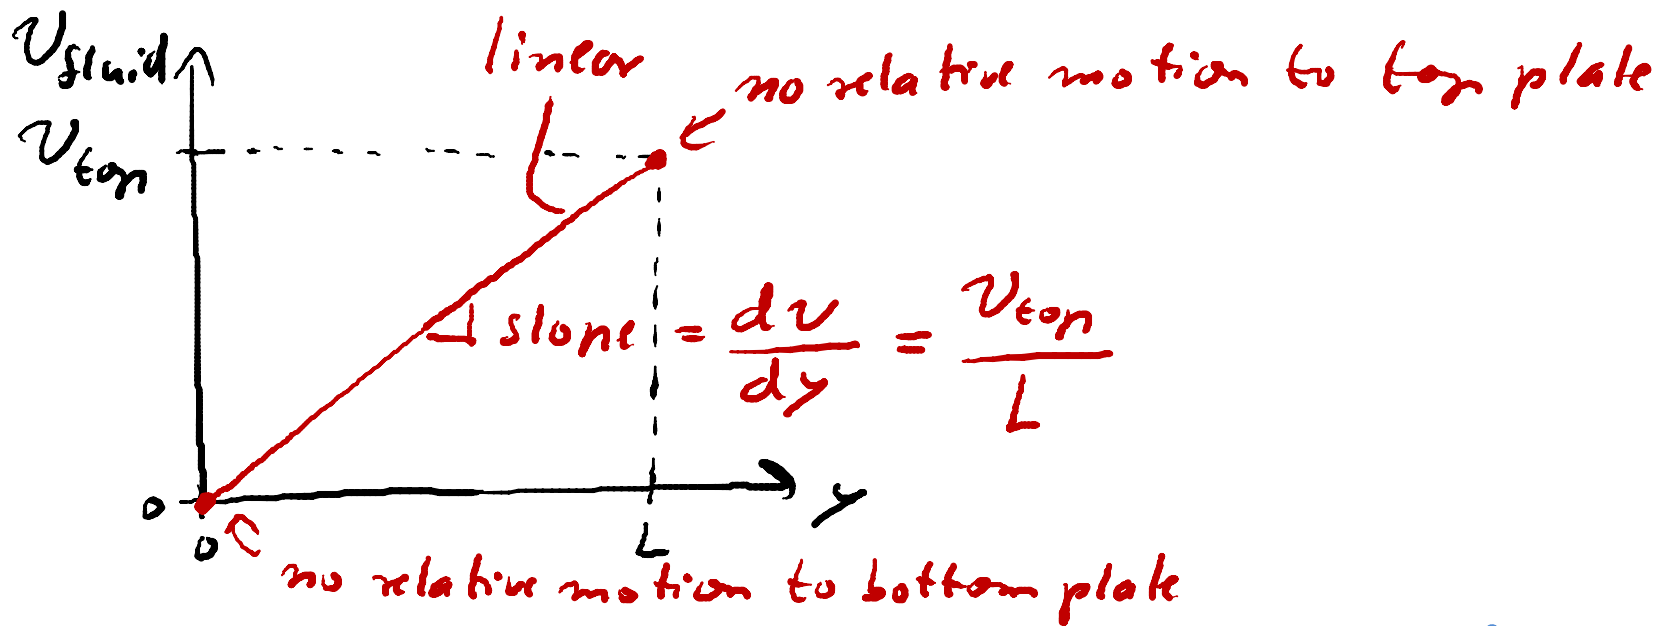 v_fluid
linear
no relative motion to top plate
v_top
slope = dv/dy = v_top/L
0
y
0
L
no relative motion to bottom plate